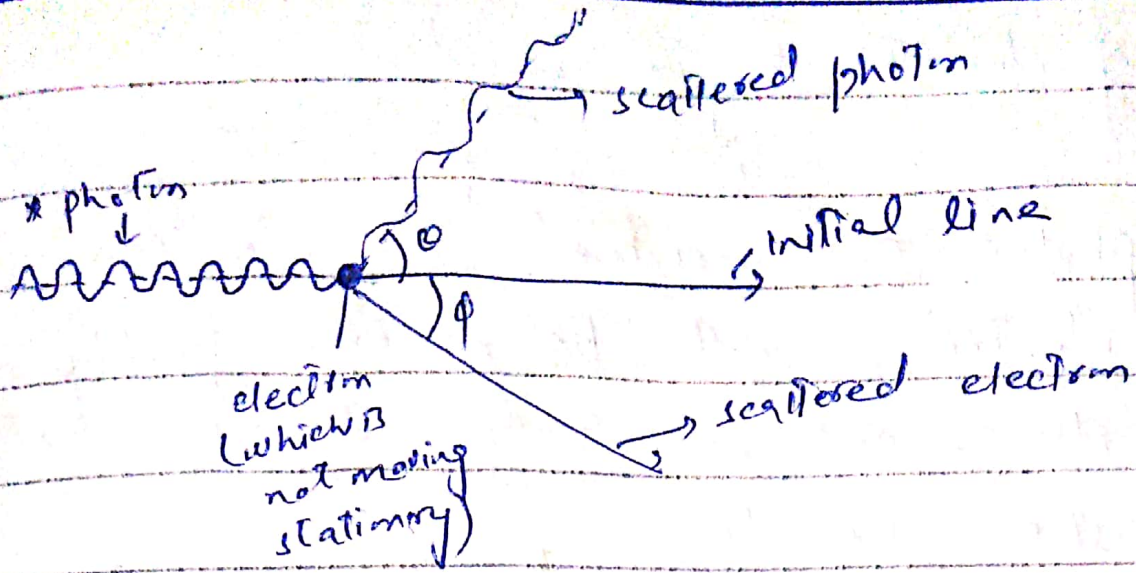 scattered photon
* photon
θ
initial line
φ
electron
(which is
not moving
stationary)
scattered electron